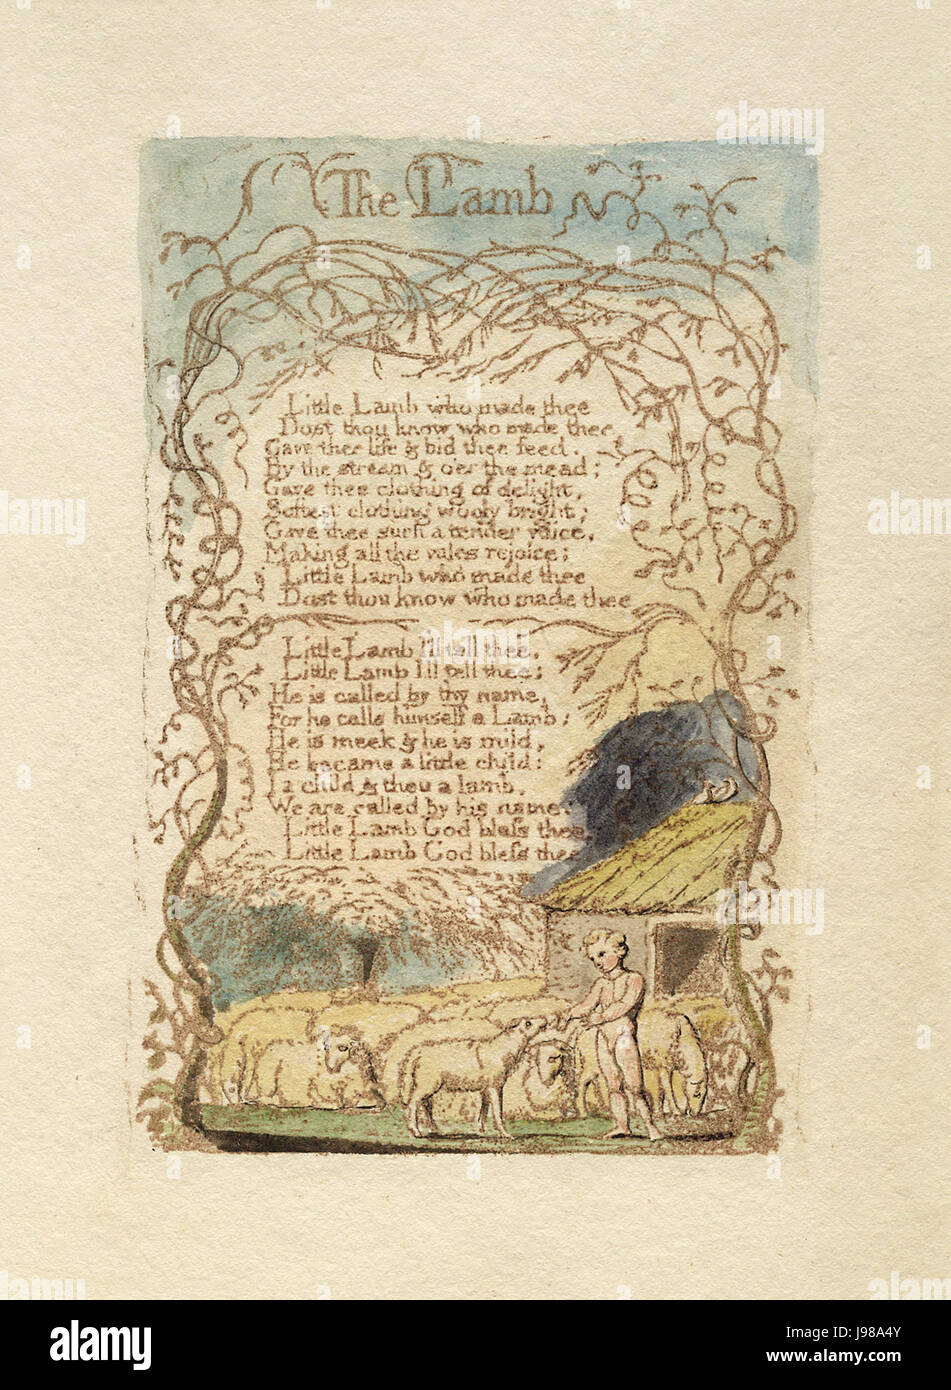 The Lamb
Little Lamb who made thee
Dost thou know who made thee
Gave thee life & bid thee feed.
By the stream & o'er the mead;
Gave thee clothing of delight,
Softest clothing wooly bright;
Gave thee such a tender voice,
Making all the vales rejoice:
Little Lamb who made thee
Dost thou know who made thee
Little Lamb I'll tell thee,
Little Lamb I'll tell thee;
He is called by thy name,
For he calls himself a Lamb:
He is meek & he is mild,
He became a little child:
I a child & thou a lamb,
We are called by his name.
Little Lamb God bleſs thee,
Little Lamb God bleſs thee
alamy
Image ID: J98A4Y
www.alamy.com